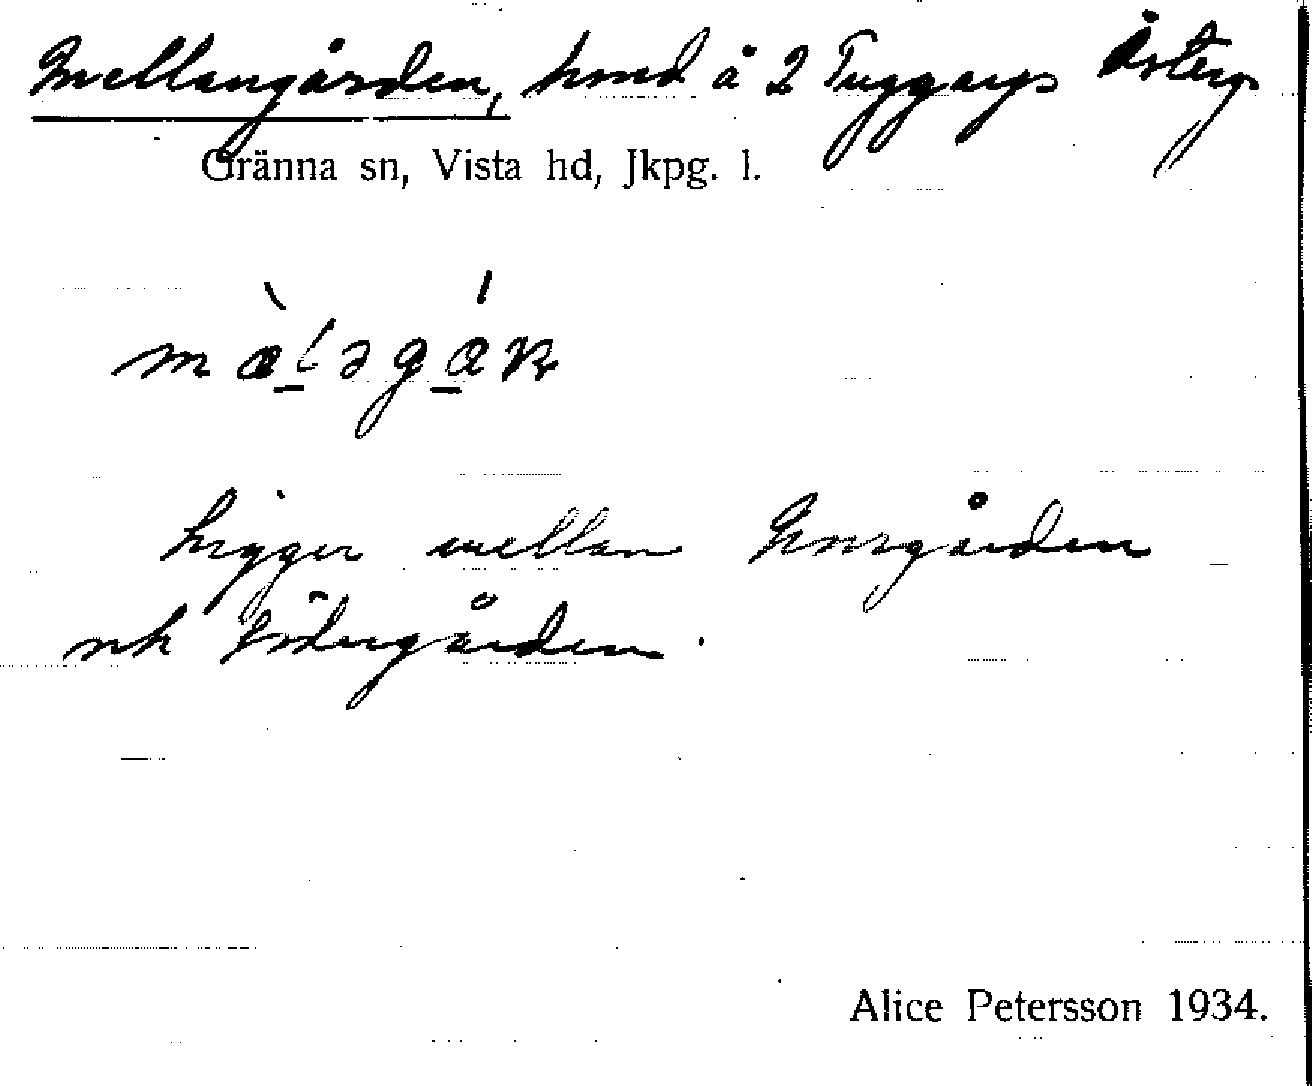 Mellangården, hmd å 2 Tuggarps Österg
Gränna sn, Vista hd, Jkpg. l.
Ligger mellan Norrgården
och Södergården.
Alice Petersson 1934.